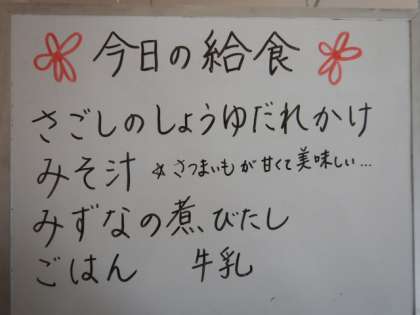 今日の給食
さごしのしょうゆだれかけ
みそ汁 ☆さつまいもが甘くて美味しい…
みずなの煮びたし
ごはん 牛乳